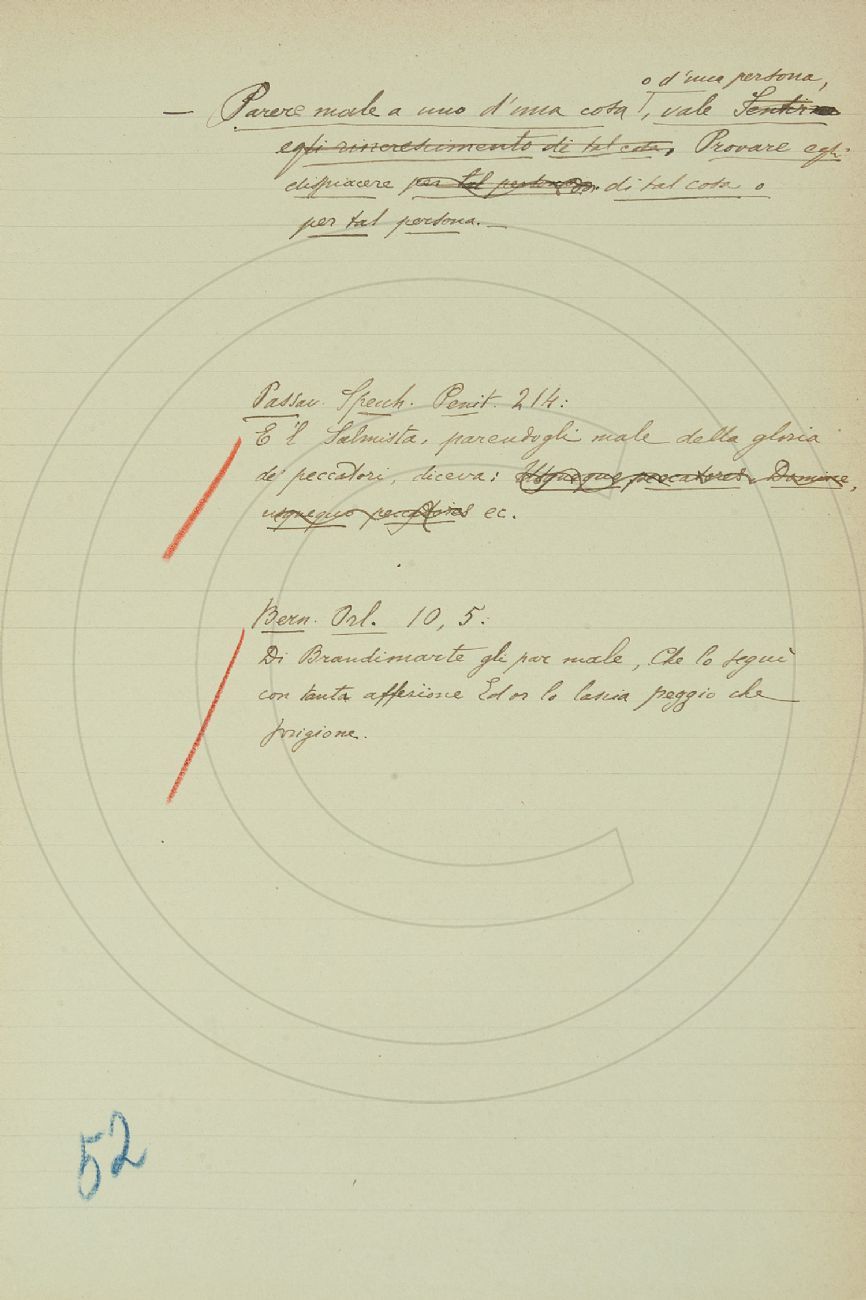 o d'una persona,
— Parere male a uno d'una cosa, vale Sentirne
egli rincrescimento di tal cosa, Provare egli
dispiacere per tal persona. di tal cosa o
per tal persona. —
Passav. Specch. Penit. 214:
E 'l Salmista, parendogli male della gloria
de' peccatori, diceva: Usqueque peccatores, Domine,
usquequo peccatores ec.
Bern. Orl. 10, 5:
Di Brandimarte gli par male, Che lo seguì
con tanta affezione Ed or lo lascia peggio che
prigione.
52